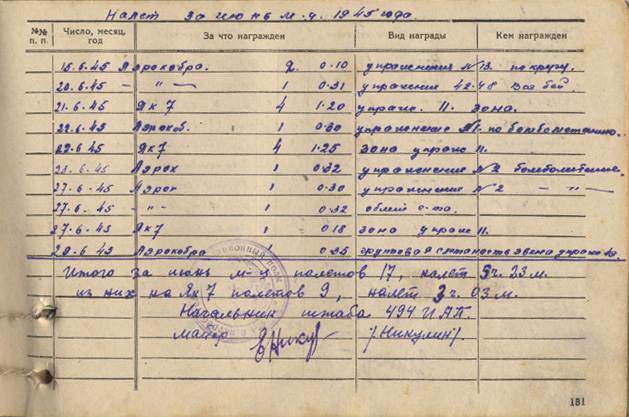 Налет за июнь м-ц 1945 года.
№№ п. п. Число, месяц, год За что награжден Вид награды Кем награжден
15.6.45 Аэрокобра. 2 0.10 упражнения №13. по кругу.
20.6.45 — "— 1 0.31 упражнение 42.48 воз бой.
21.6.45 Як 7 4 1.20 упраж. 11. зона.
22.6.45 Аэрокоб. 1 0.30 упражнение №1. по бомбометанию.
22.6.45 Як7 4 1.25 зона упраж 11.
23.6.45 Аэрок 1 0.32 упражнение №2 бомбометание.
27.6.45 Аэрок 1 0.30 упражнение №2 — "—
27.6.45 -"- 1 0.32 облет с-та.
27.6.45 Як7 1 0.18 зона упраж 11.
28.6.45 Аэрокобра 1 0.35 групповая слетаность звена упраж
Итого за июнь м-ц полетов 17, налет 5ч. 23м.
из них на Як 7 полетов 9, налет 3ч. 03м.
Начальник штаба 494 ИАП.
майор /Никулин/.
131